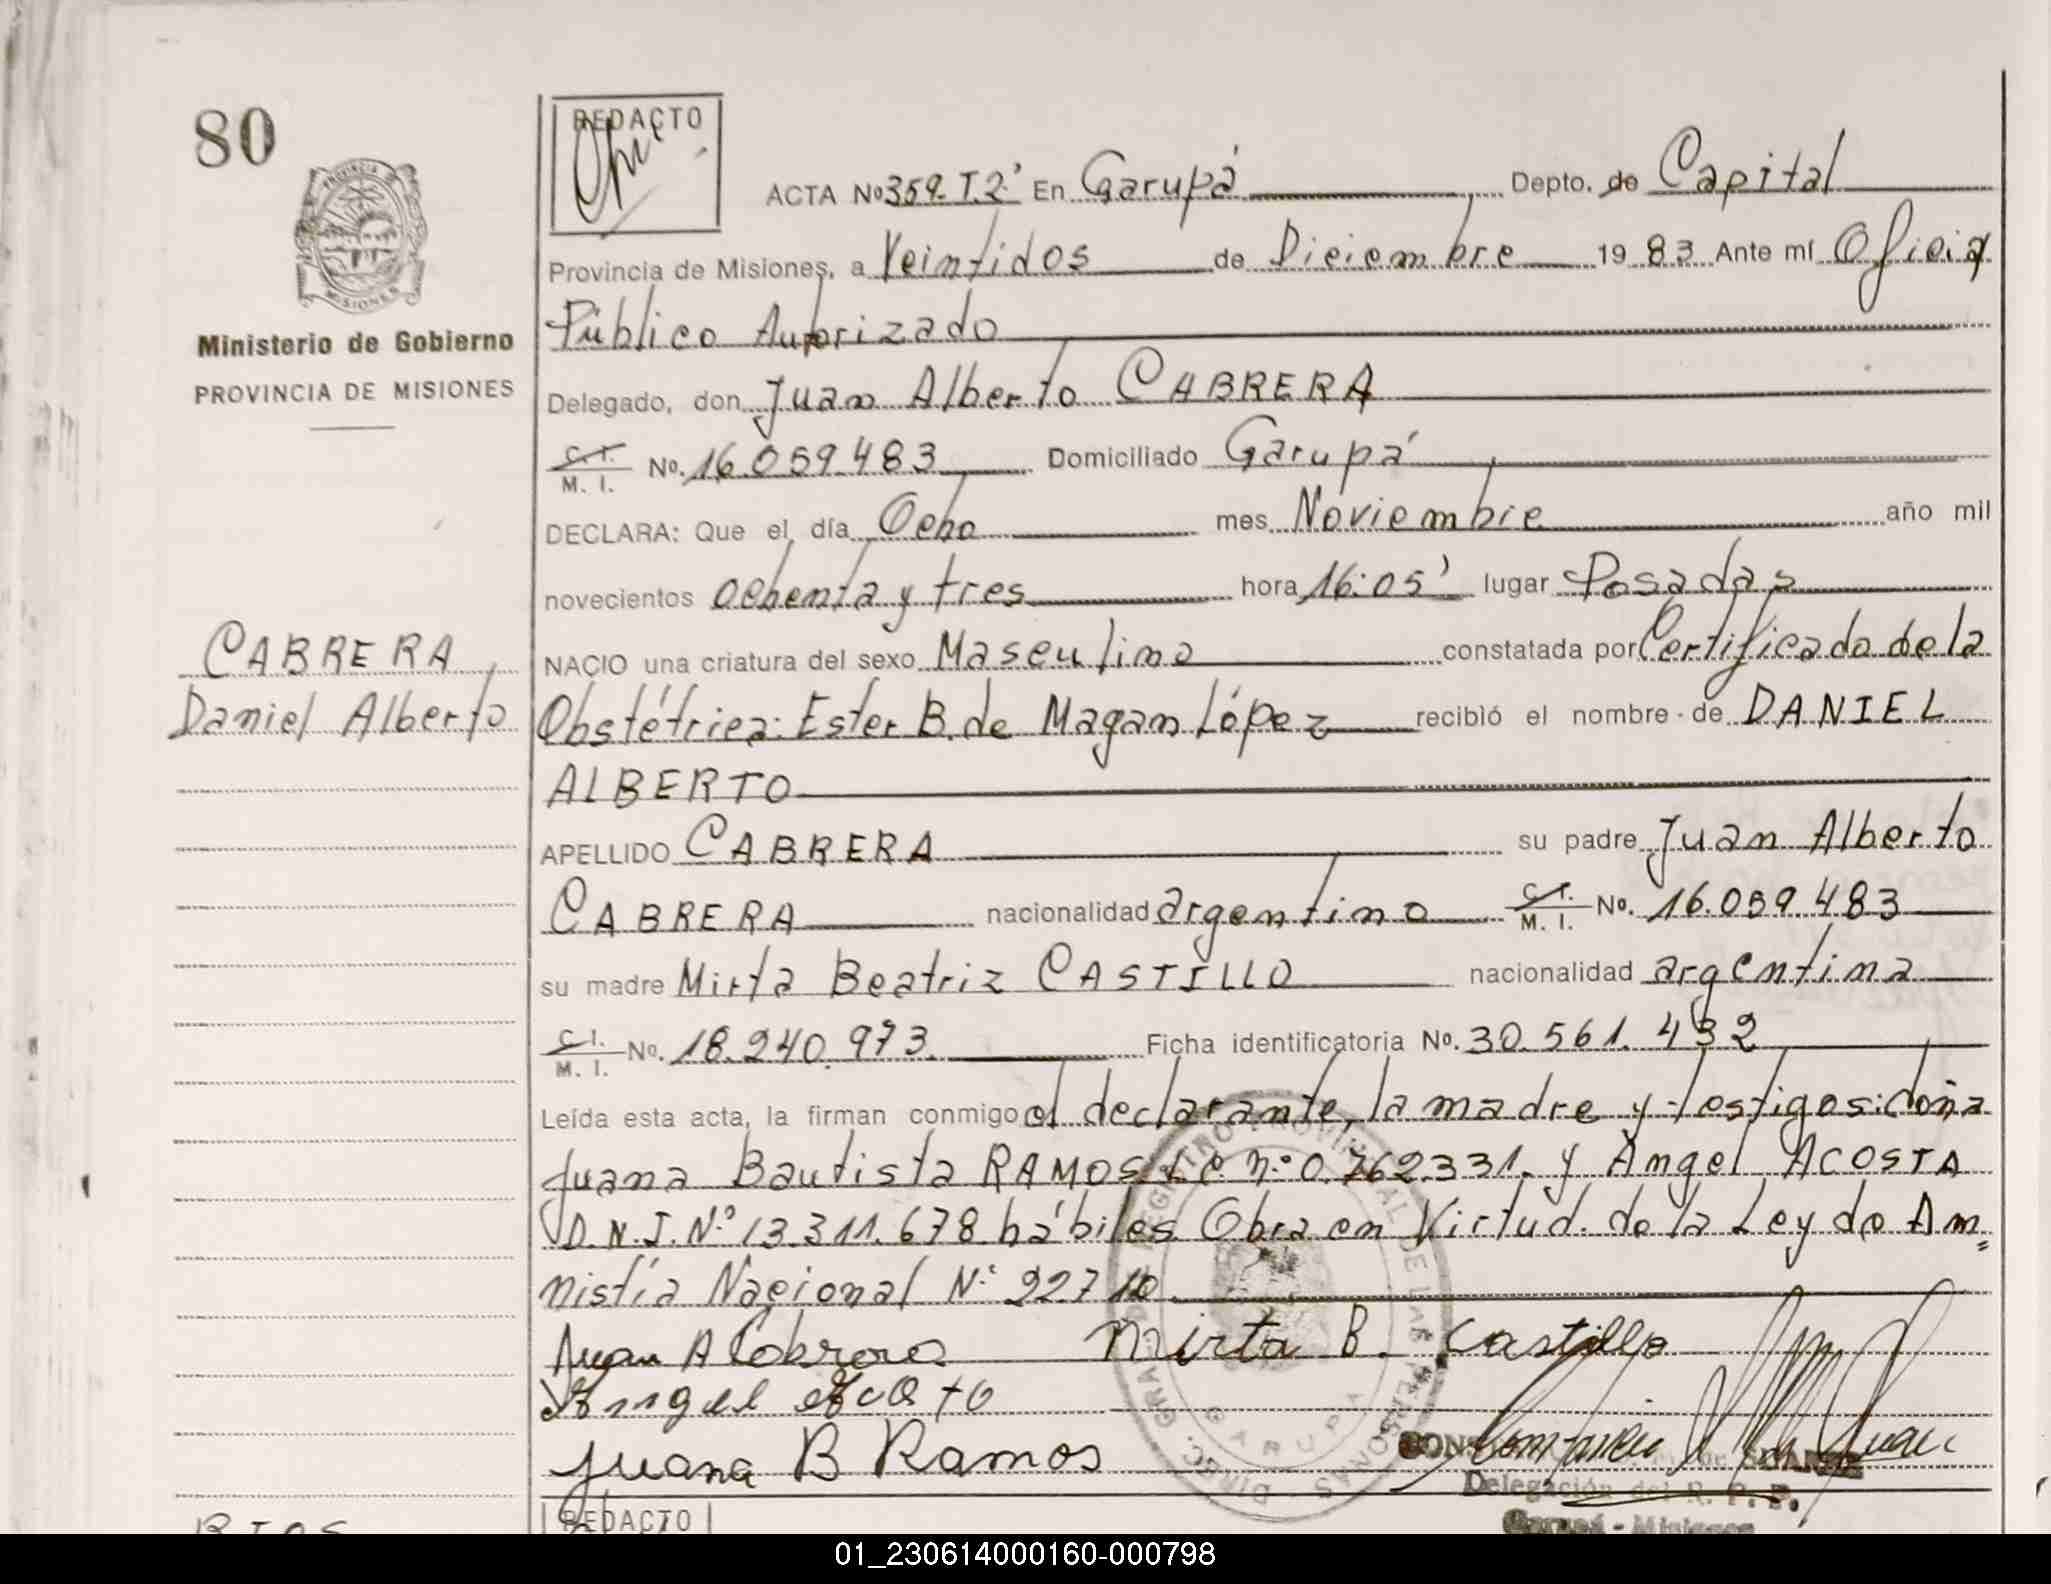 80
REDACTO
ACTA Nº 359. T.2º En Garupá Depto. de Capital
Provincia de Misiones, a Veintidos de Diciembre 19 83 Ante mí Oficial
Público Autorizado
Delegado, don Juan Alberto CABRERA
C. I. M. I. No. 16.059.483 Domiciliado Garupá
DECLARA: Que el día Ocho mes Noviembre año mil
novecientos ochenta y tres hora 16:05' lugar Posadas
NACIO una criatura del sexo Masculino constatada por Certificado de la
Obstétrica: Ester B. de Magan López recibió el nombre de DANIEL
ALBERTO
APELLIDO CABRERA su padre Juan Alberto
CABRERA nacionalidad argentino C. I. M. I. No. 16.059.483
su madre Mirta Beatriz CASTILLO nacionalidad argentina
C. I. M. I. No. 18.240.973. Ficha identificatoria No. 30.561.432
Leída esta acta, la firman conmigo el declarante, la madre y testigos: doña
Juana Bautista RAMOS L.C. nº 0.762.331. y Angel ACOSTA
D.N.I. Nº 13.311.678 hábiles Obra en Virtud de la Ley de Am=
nistía Nacional Nº 22710
Juan A Cabrera Mirta B. Castillo
Angel Acosta
Juana B Ramos
Delegación del R. P. P.
Garupá - Misiones
DIREC. GRAL. DE REGISTRO PROVINCIAL DE LAS PERSONAS
GARUPA
PROVINCIA DE MISIONES
Ministerio de Gobierno
PROVINCIA DE MISIONES
CABRERA
Daniel Alberto
RIOS
REDACTO
01_230614000160-000798